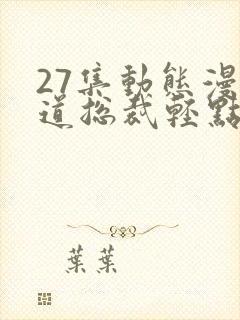 27集動態漫
道总裁轻點
葉葉